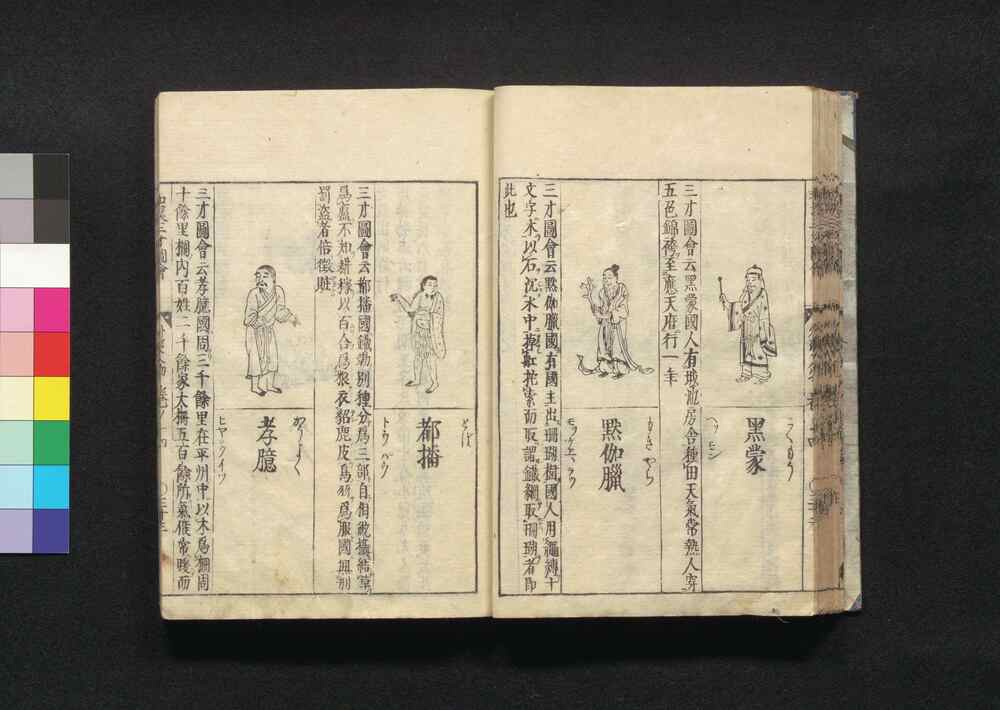 黑蒙
こくもう
三才圖會云黑蒙國人有城池房舍種田天氣常熱人穿
五色錦袴至應天府行一年
㸃伽臘
三才圖會云㸃伽臘國有國主出珊瑚樹國人用繩縛十
文字木以石沉水中棹舡拕索而取謂鐵網取珊瑚者即
此也
都播
とは
トウ パウ
三才圖會云都播國鐵勒別種分爲三部自相統攝結草
爲廬不知耕稼以百合爲粮衣貂鹿皮爲衣爲服國無刑
罰盜者倍徵贓
孝臆
かうよく
ヒヤウ イツ
三才圖會云孝臆國周三千餘里在平川中以木爲柵周
十餘里柵內百姓二千餘家大柵五百餘所氣候常暖而